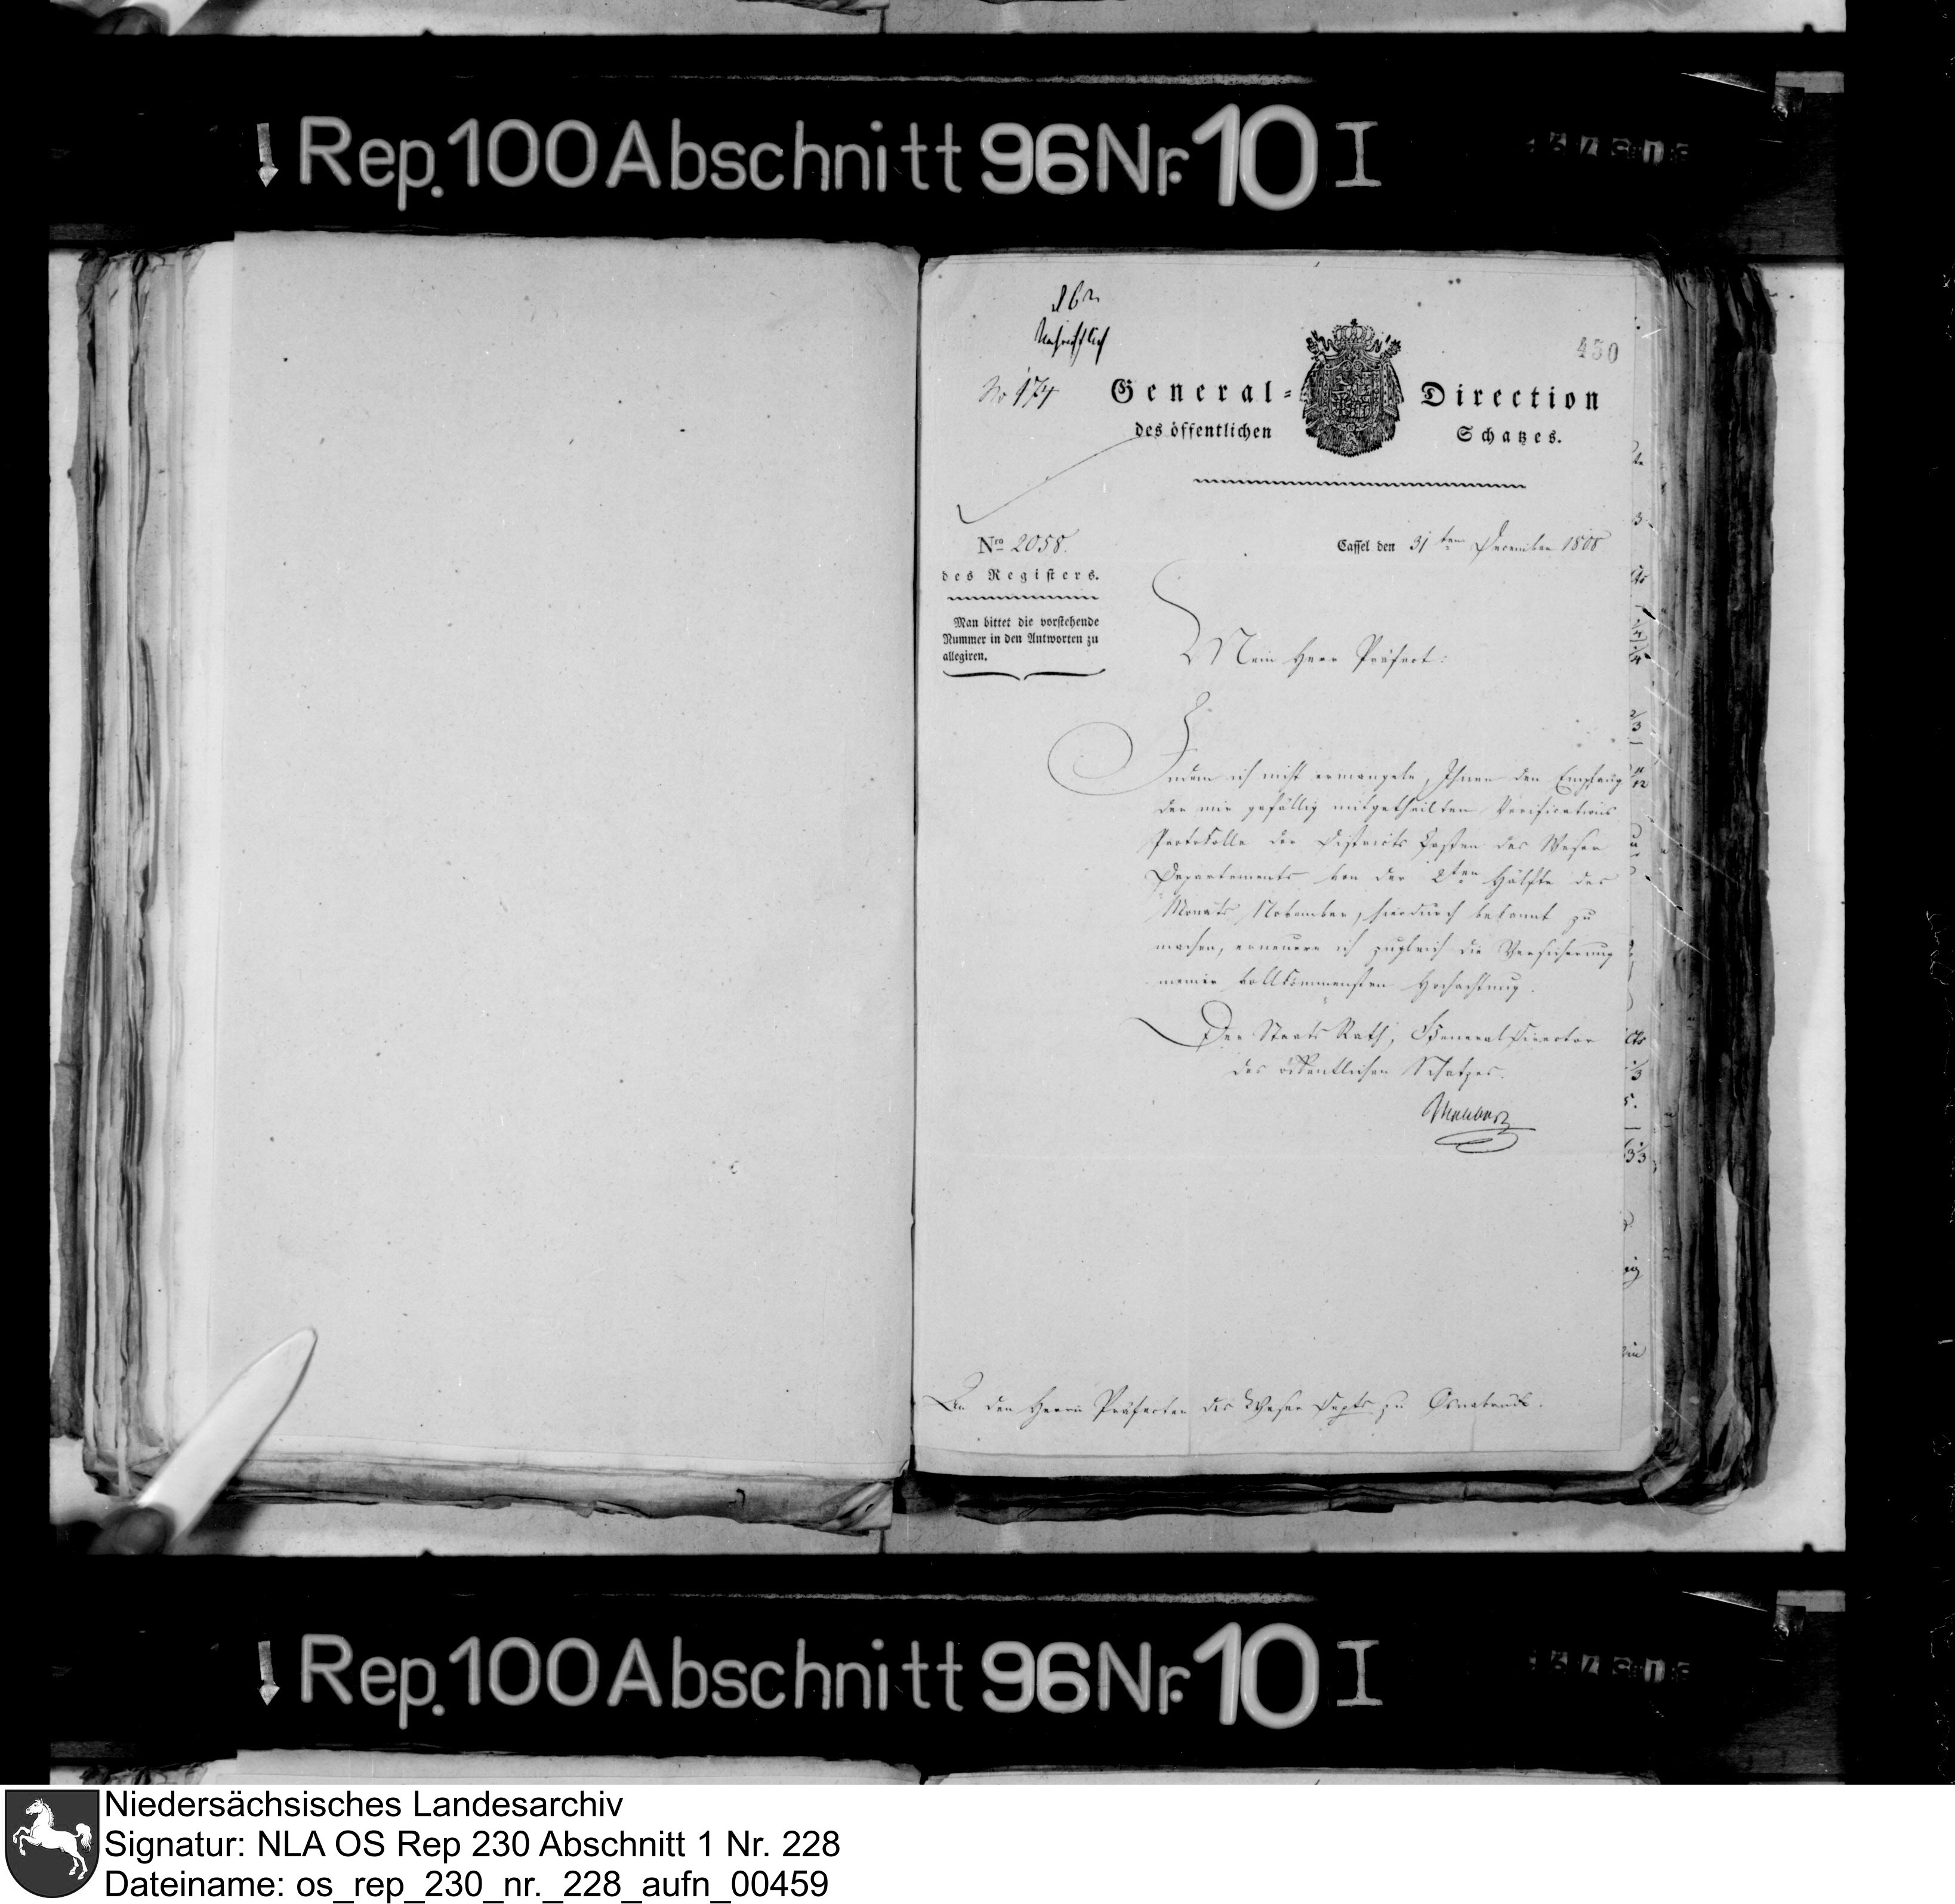 Rep. 100 Abschnitt 96 Nr. 10 I
No 174
450
General-Direction
des öffentlichen Schatzes.
Nro 2058.
des Registers.
Cassel den 31ten December 1808
Man bittet die vorstehende
Nummer in den Antworten zu
allegiren.
Mein Herr Präfect:
Indem ich nicht ermangele, Ihnen den Empfang
der mir gefällig mitgetheilten Verifications
Protokolle der Districts Cassen des Weser
Departements von der 2ten Hälfte des
Monats November, hierdurch bekannt zu
machen, erneuere ich zugleich die Versicherung
meiner vollkommensten Hochachtung.
Der Staats Rath, General Director
des öffentlichen Schatzes.
An den Herrn Präfecten des Weser Depts zu Osnabrück.
Rep. 100 Abschnitt 96 Nr. 10 I
Niedersächsisches Landesarchiv
Signatur: NLA OS Rep 230 Abschnitt 1 Nr. 228
Dateiname: os_rep_230_nr._228_aufn_00459